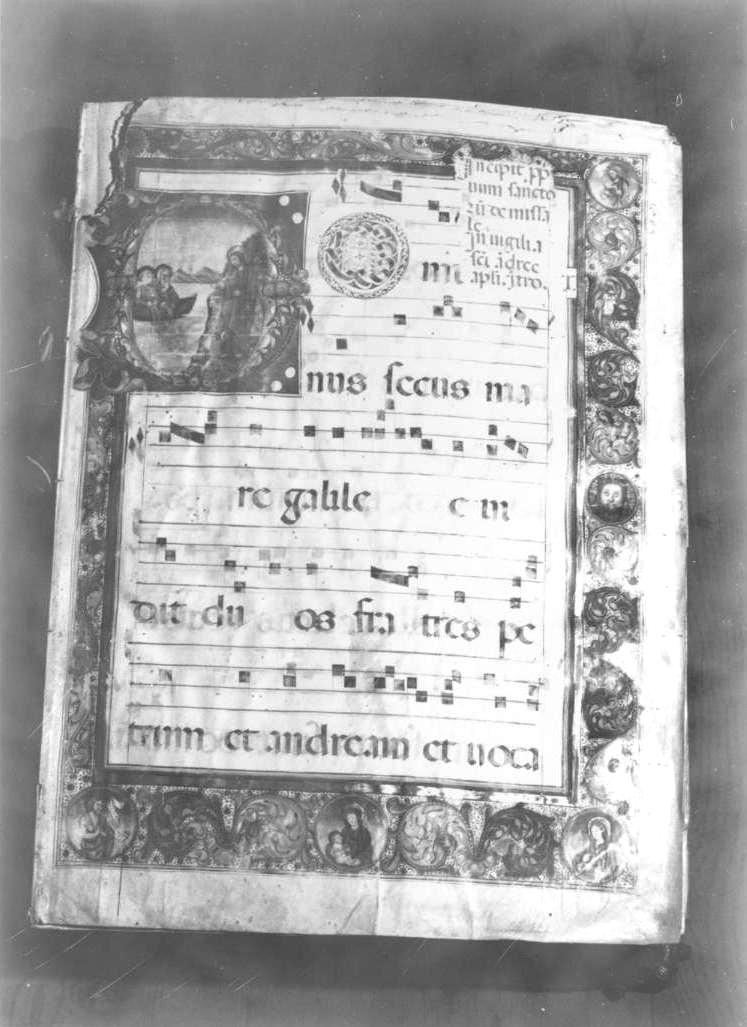 Incipit pp
rium sancto
rū de missa
le
In uigilia
sci adree
apli. itro.
DO mi
nus secus ma
re galile e ui
dit du os fra tres pe
trum et andream et uoca